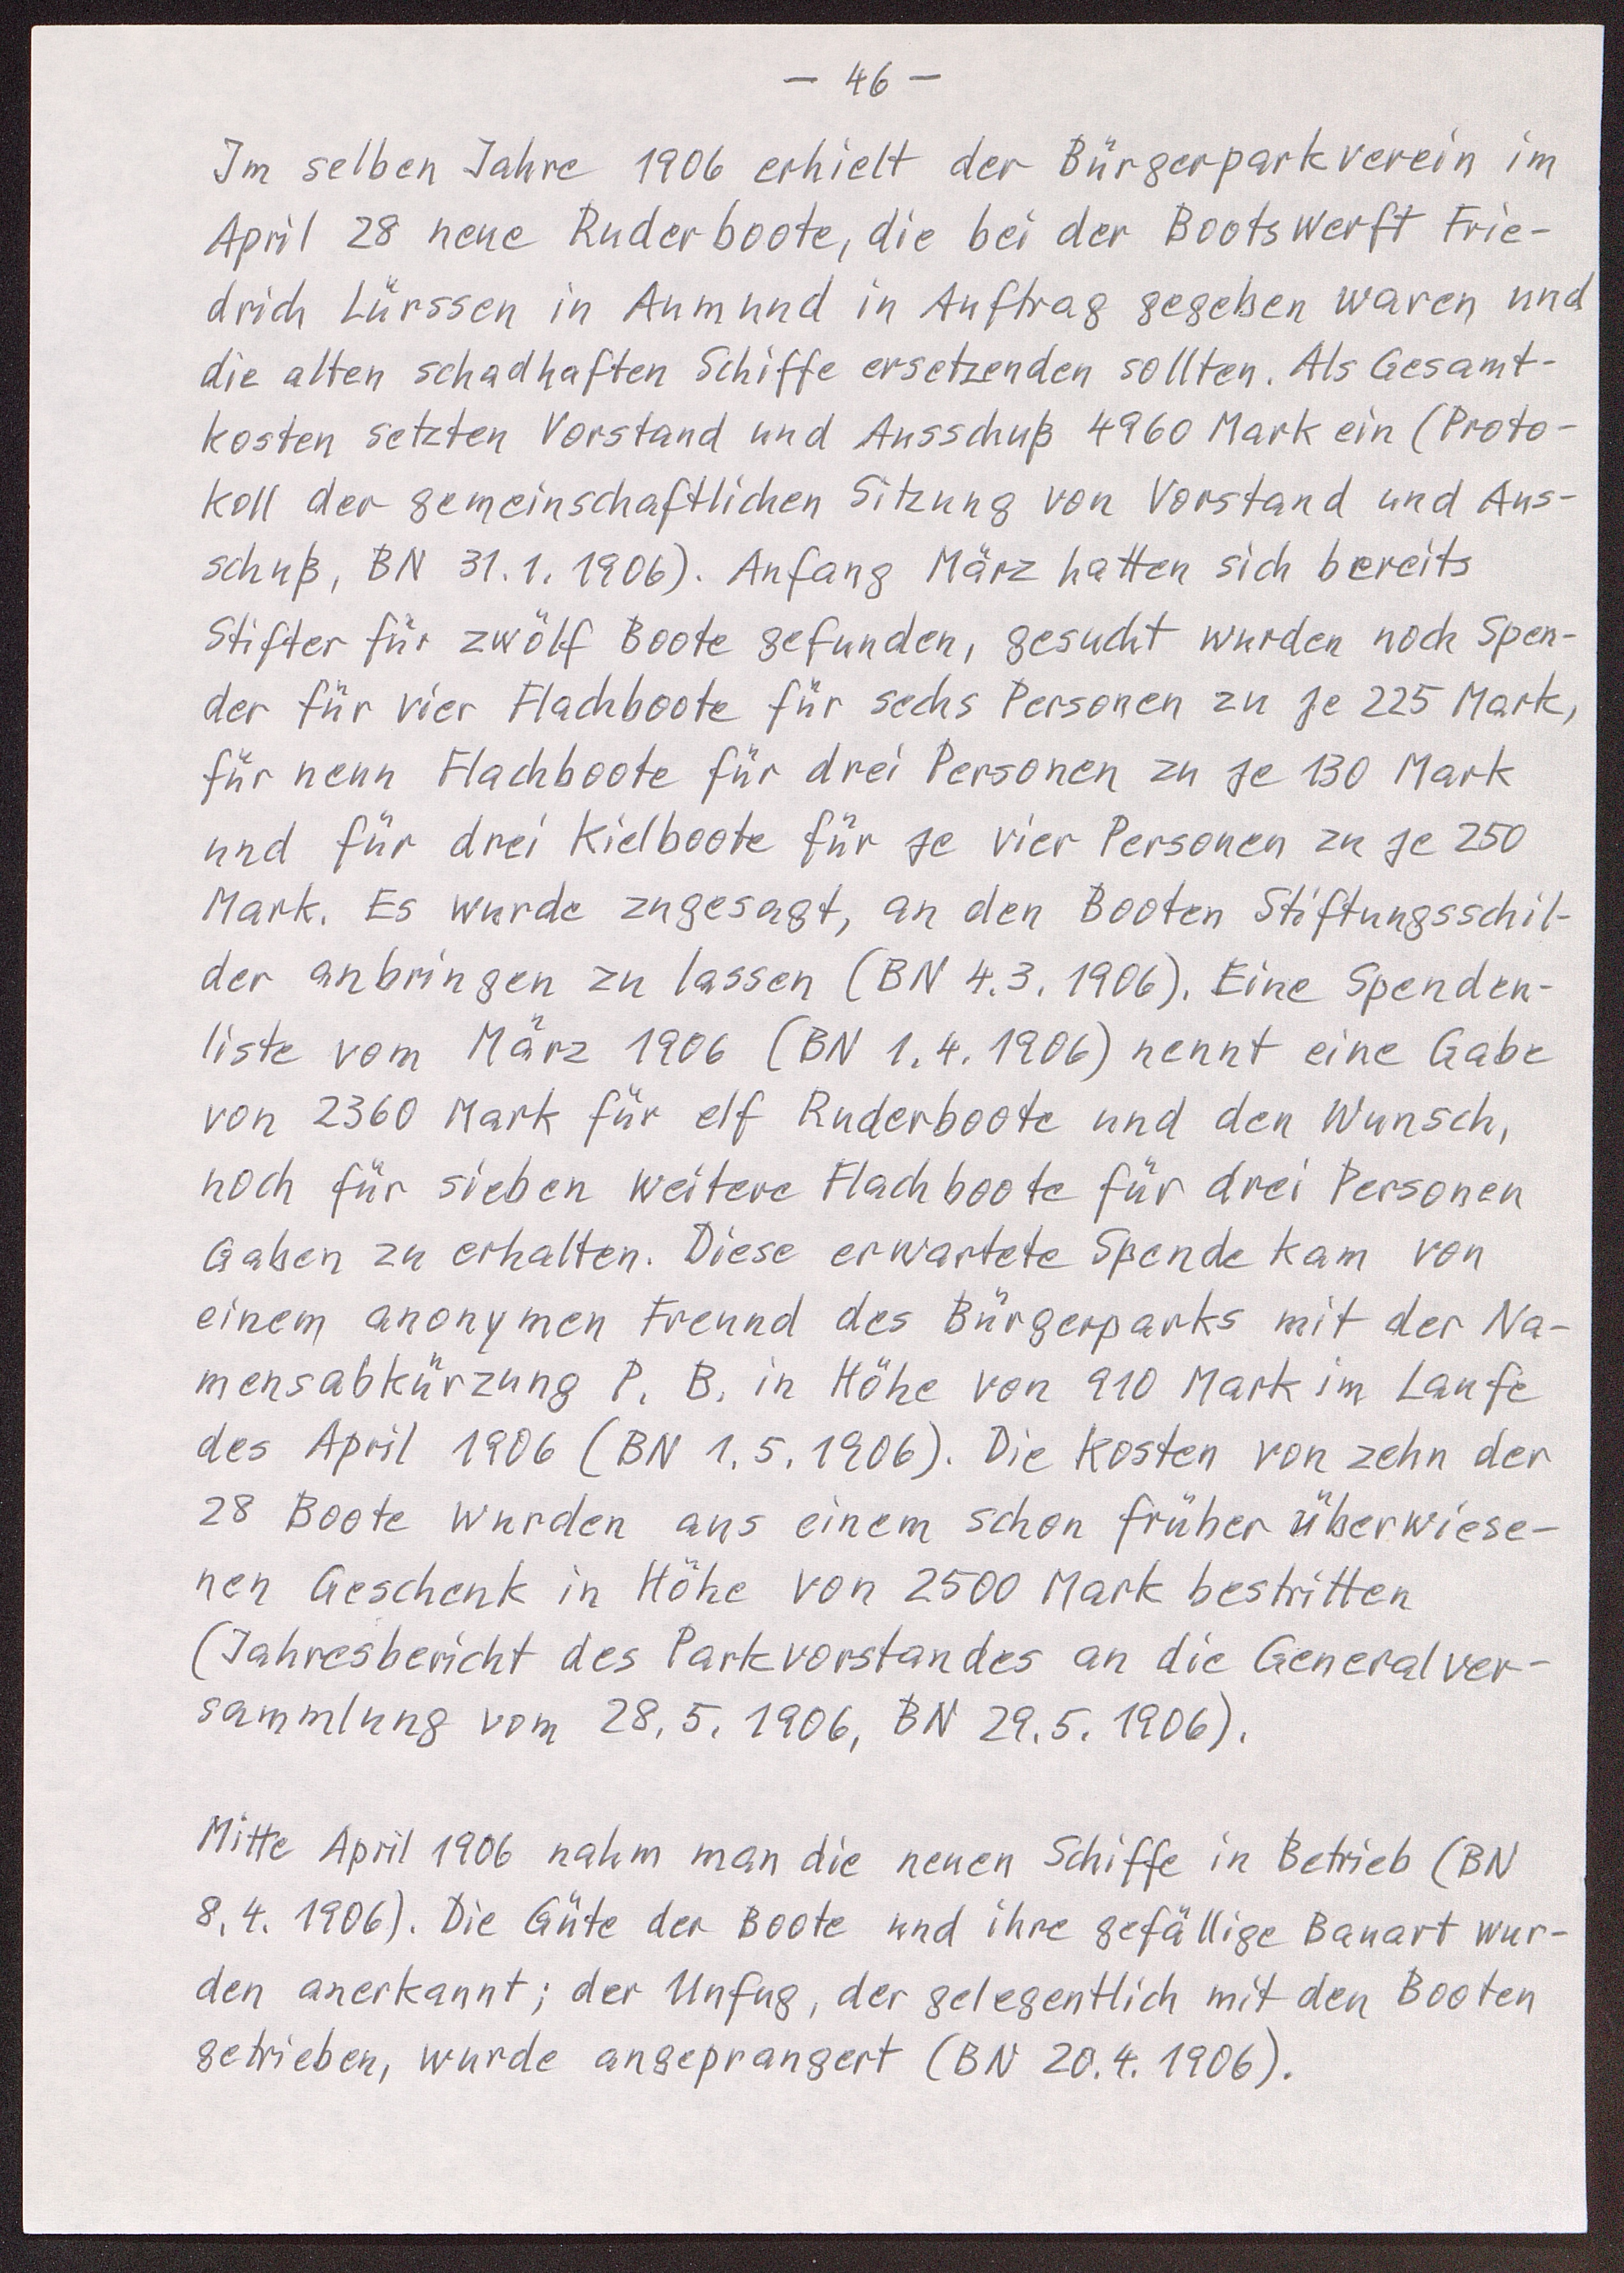 – 46 –
Im selben Jahre 1906 erhielt der Bürgerparkverein im
April 28 neue Ruderboote, die bei der Bootswerft Frie-
drich Lürssen in Aumund in Auftrag gegeben waren und
die alten schadhaften Schiffe ersetzenden sollten. Als Gesamt-
kosten setzten Vorstand und Ausschuß 4960 Mark ein (Proto-
koll der gemeinschaftlichen Sitzung von Vorstand und Aus-
schuß, BN 31.1.1906). Anfang März hatten sich bereits
Stifter für zwölf Boote gefunden, gesucht wurden noch Spen-
der für vier Flachboote für sechs Personen zu je 225 Mark,
für neun Flachboote für drei Personen zu je 130 Mark
und für drei Kielboote für je vier Personen zu je 250
Mark. Es wurde zugesagt, an den Booten Stiftungsschil-
der anbringen zu lassen (BN 4.3.1906). Eine Spenden-
liste vom März 1906 (BN 1.4.1906) nennt eine Gabe
von 2360 Mark für elf Ruderboote und den Wunsch,
noch für sieben weitere Flachboote für drei Personen
Gaben zu erhalten. Diese erwartete Spende kam von
einem anonymen Freund des Bürgerparks mit der Na-
mensabkürzung P. B. in Höhe von 910 Mark im Laufe
des April 1906 (BN 1.5.1906). Die Kosten von zehn der
28 Boote wurden aus einem schon früher überwiese-
nen Geschenk in Höhe von 2500 Mark bestritten
(Jahresbericht des Parkvorstandes an die Generalver-
sammlung vom 28.5.1906, BN 29.5.1906).
Mitte April 1906 nahm man die neuen Schiffe in Betrieb (BN
8.4.1906). Die Güte der Boote und ihre gefällige Bauart wur-
den anerkannt; der Unfug, der gelegentlich mit den Booten
getrieben, wurde angeprangert (BN 20.4.1906).